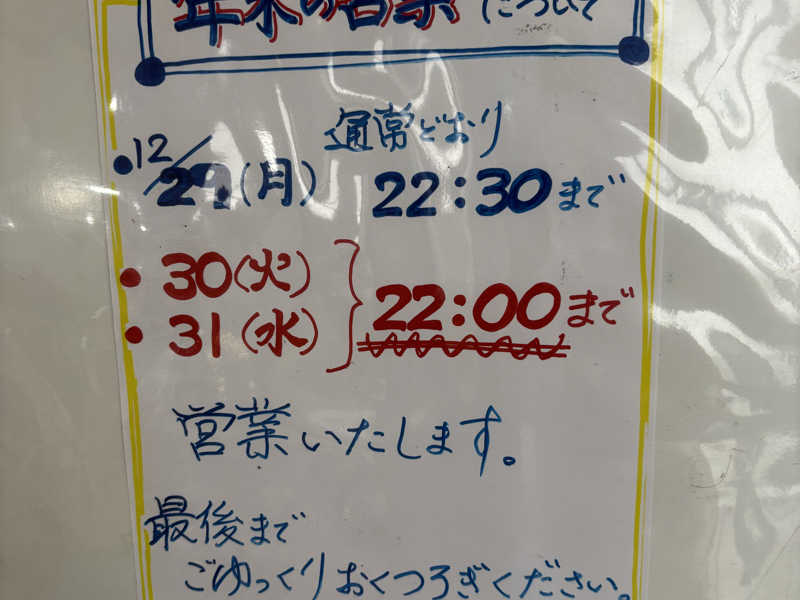 年末の営業について
• 12/29(月) 通常どおり 22:30まで
• 30(火)
• 31(水) } 22:00まで
営業いたします。
最後まで
ごゆっくりおくつろぎください。